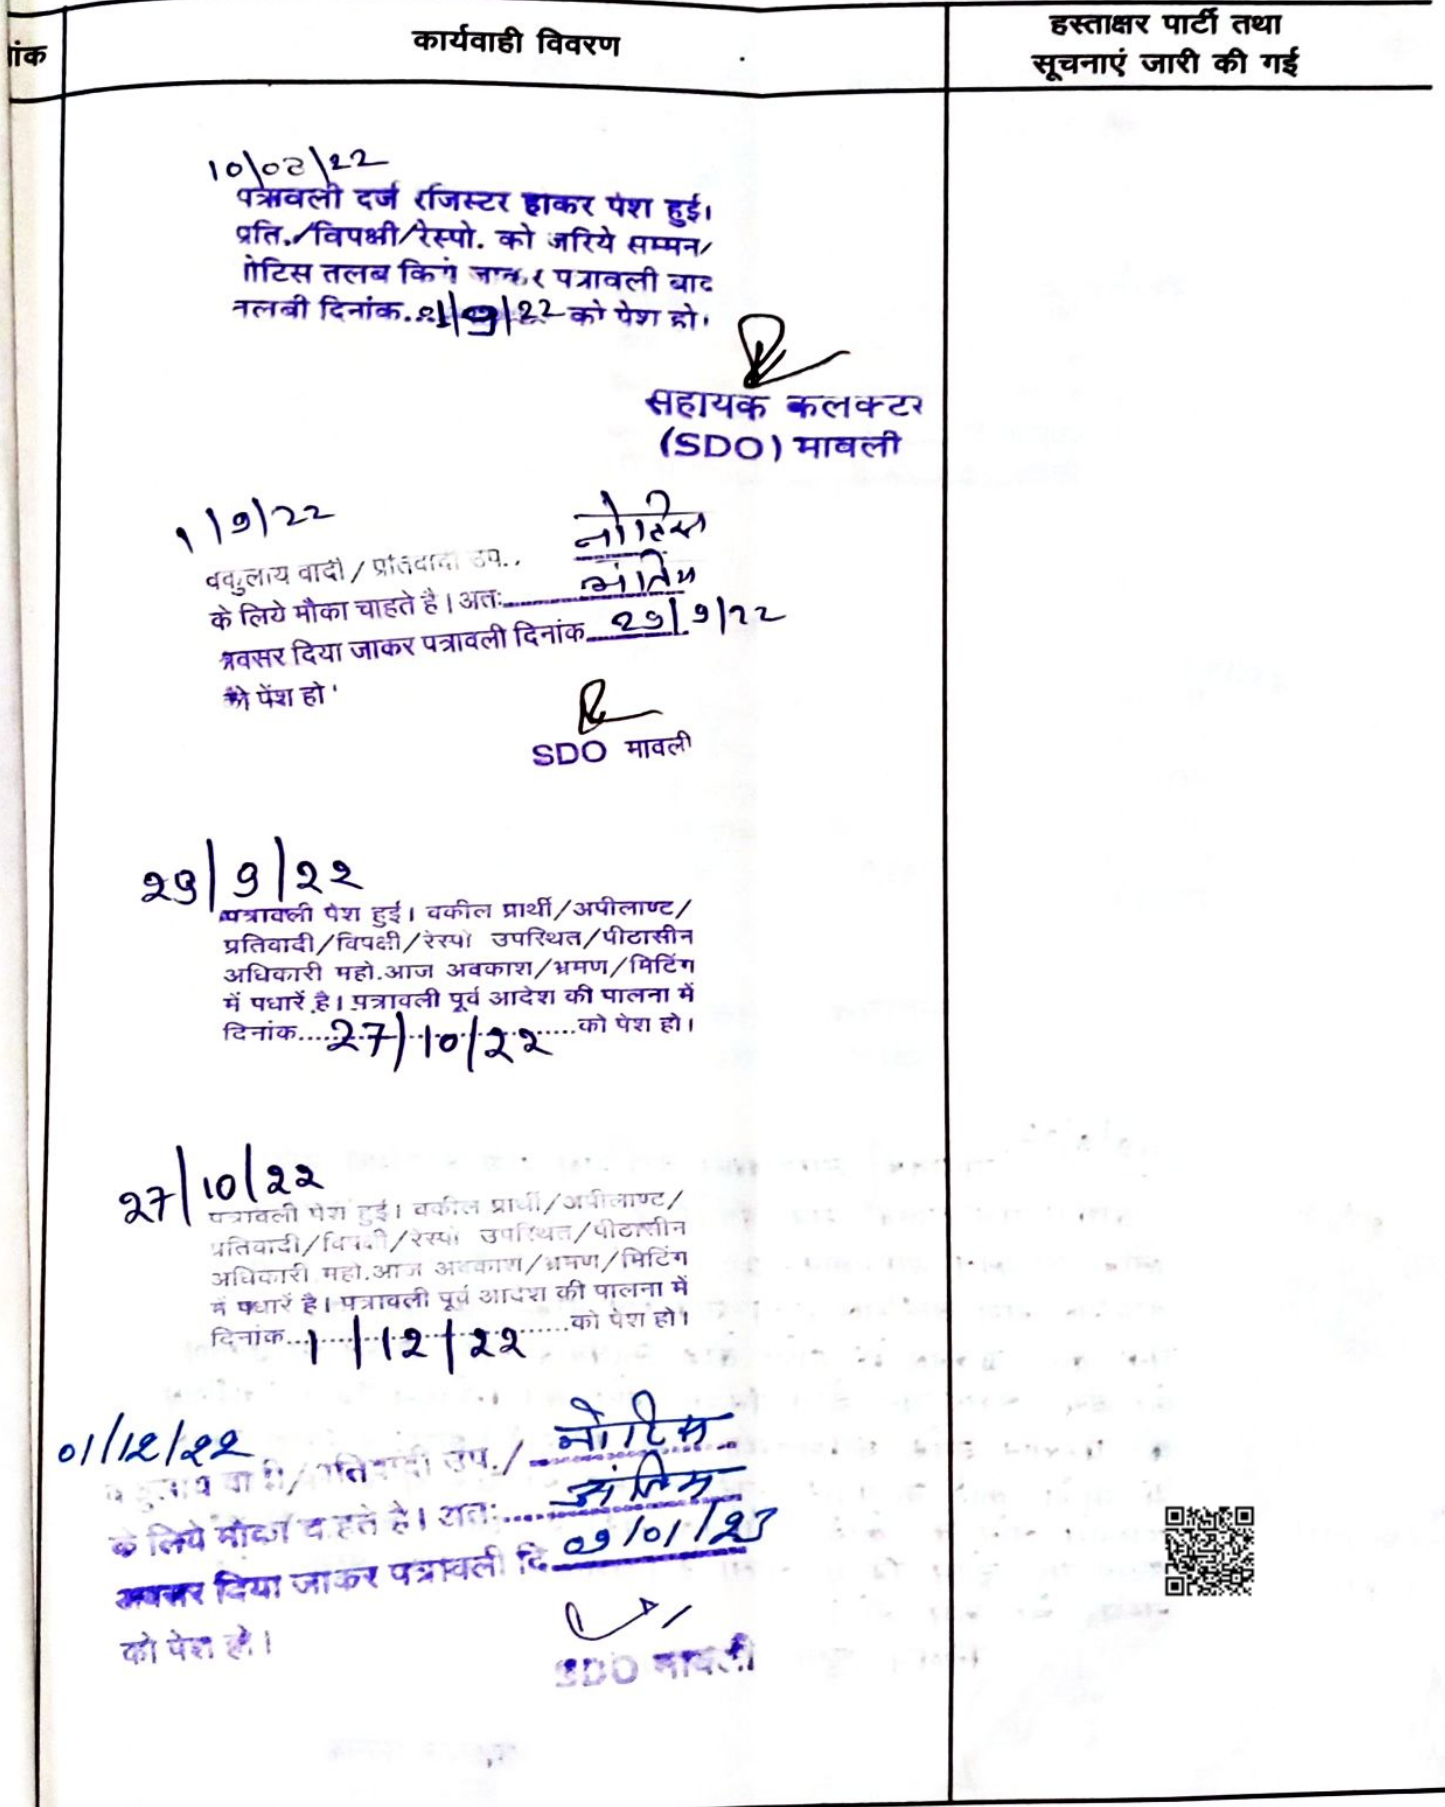 कार्यवाही विवरण
हस्ताक्षर पार्टी तथा
सूचनाएं जारी की गई
ांक
10/08/22
पत्रावली दर्ज रजिस्टर होकर पेश हुई।
प्रति./विपक्षी/रेस्पो. को जरिये सम्मन/
नोटिस तलब किये जाकर पत्रावली बाद
तलबी दिनांक..01/9/22 को पेश हो।
सहायक कलक्टर
(SDO) मावली
1/9/22
नोटिस
वकुलाय वादी/प्रतिवादी उप..
के लिये मौका चाहते है। अतः अंतिम
अवसर दिया जाकर पत्रावली दिनांक 29/9/22
को पेंश हो
SDO मावली
29/9/22
पत्रावली पेश हुई। वकील प्रार्थी/अपीलाण्ट/
प्रतिवादी/विपक्षी/रेस्पो उपस्थित/पीटासीन
अधिकारी महो.आज अवकाश/भ्रमण/मिटिंग
में पधारें है। पत्रावली पूर्व आदेश की पालना में
दिनांक....27/10/22....को पेश हो।
27/10/22
पत्रावली पेश हुई। वकील प्रार्थी/अपीलाण्ट/
प्रतिवादी/विपक्षी/रेस्पो उपस्थित/पीटासीन
अधिकारी महो.आज अवकाश/भ्रमण/मिटिंग
में पधारें है। पत्रावली पूर्व आदेश की पालना में
दिनांक...1/12/22....को पेश हो।
01/12/22
वकुलाय वादी/प्रतिवादी उप./ नोटिस
के लिये मौका चाहते है। अतः..... अंतिम
अवसर दिया जाकर पत्रावली दि 09/01/23
को पेश हो।
SDO मावली